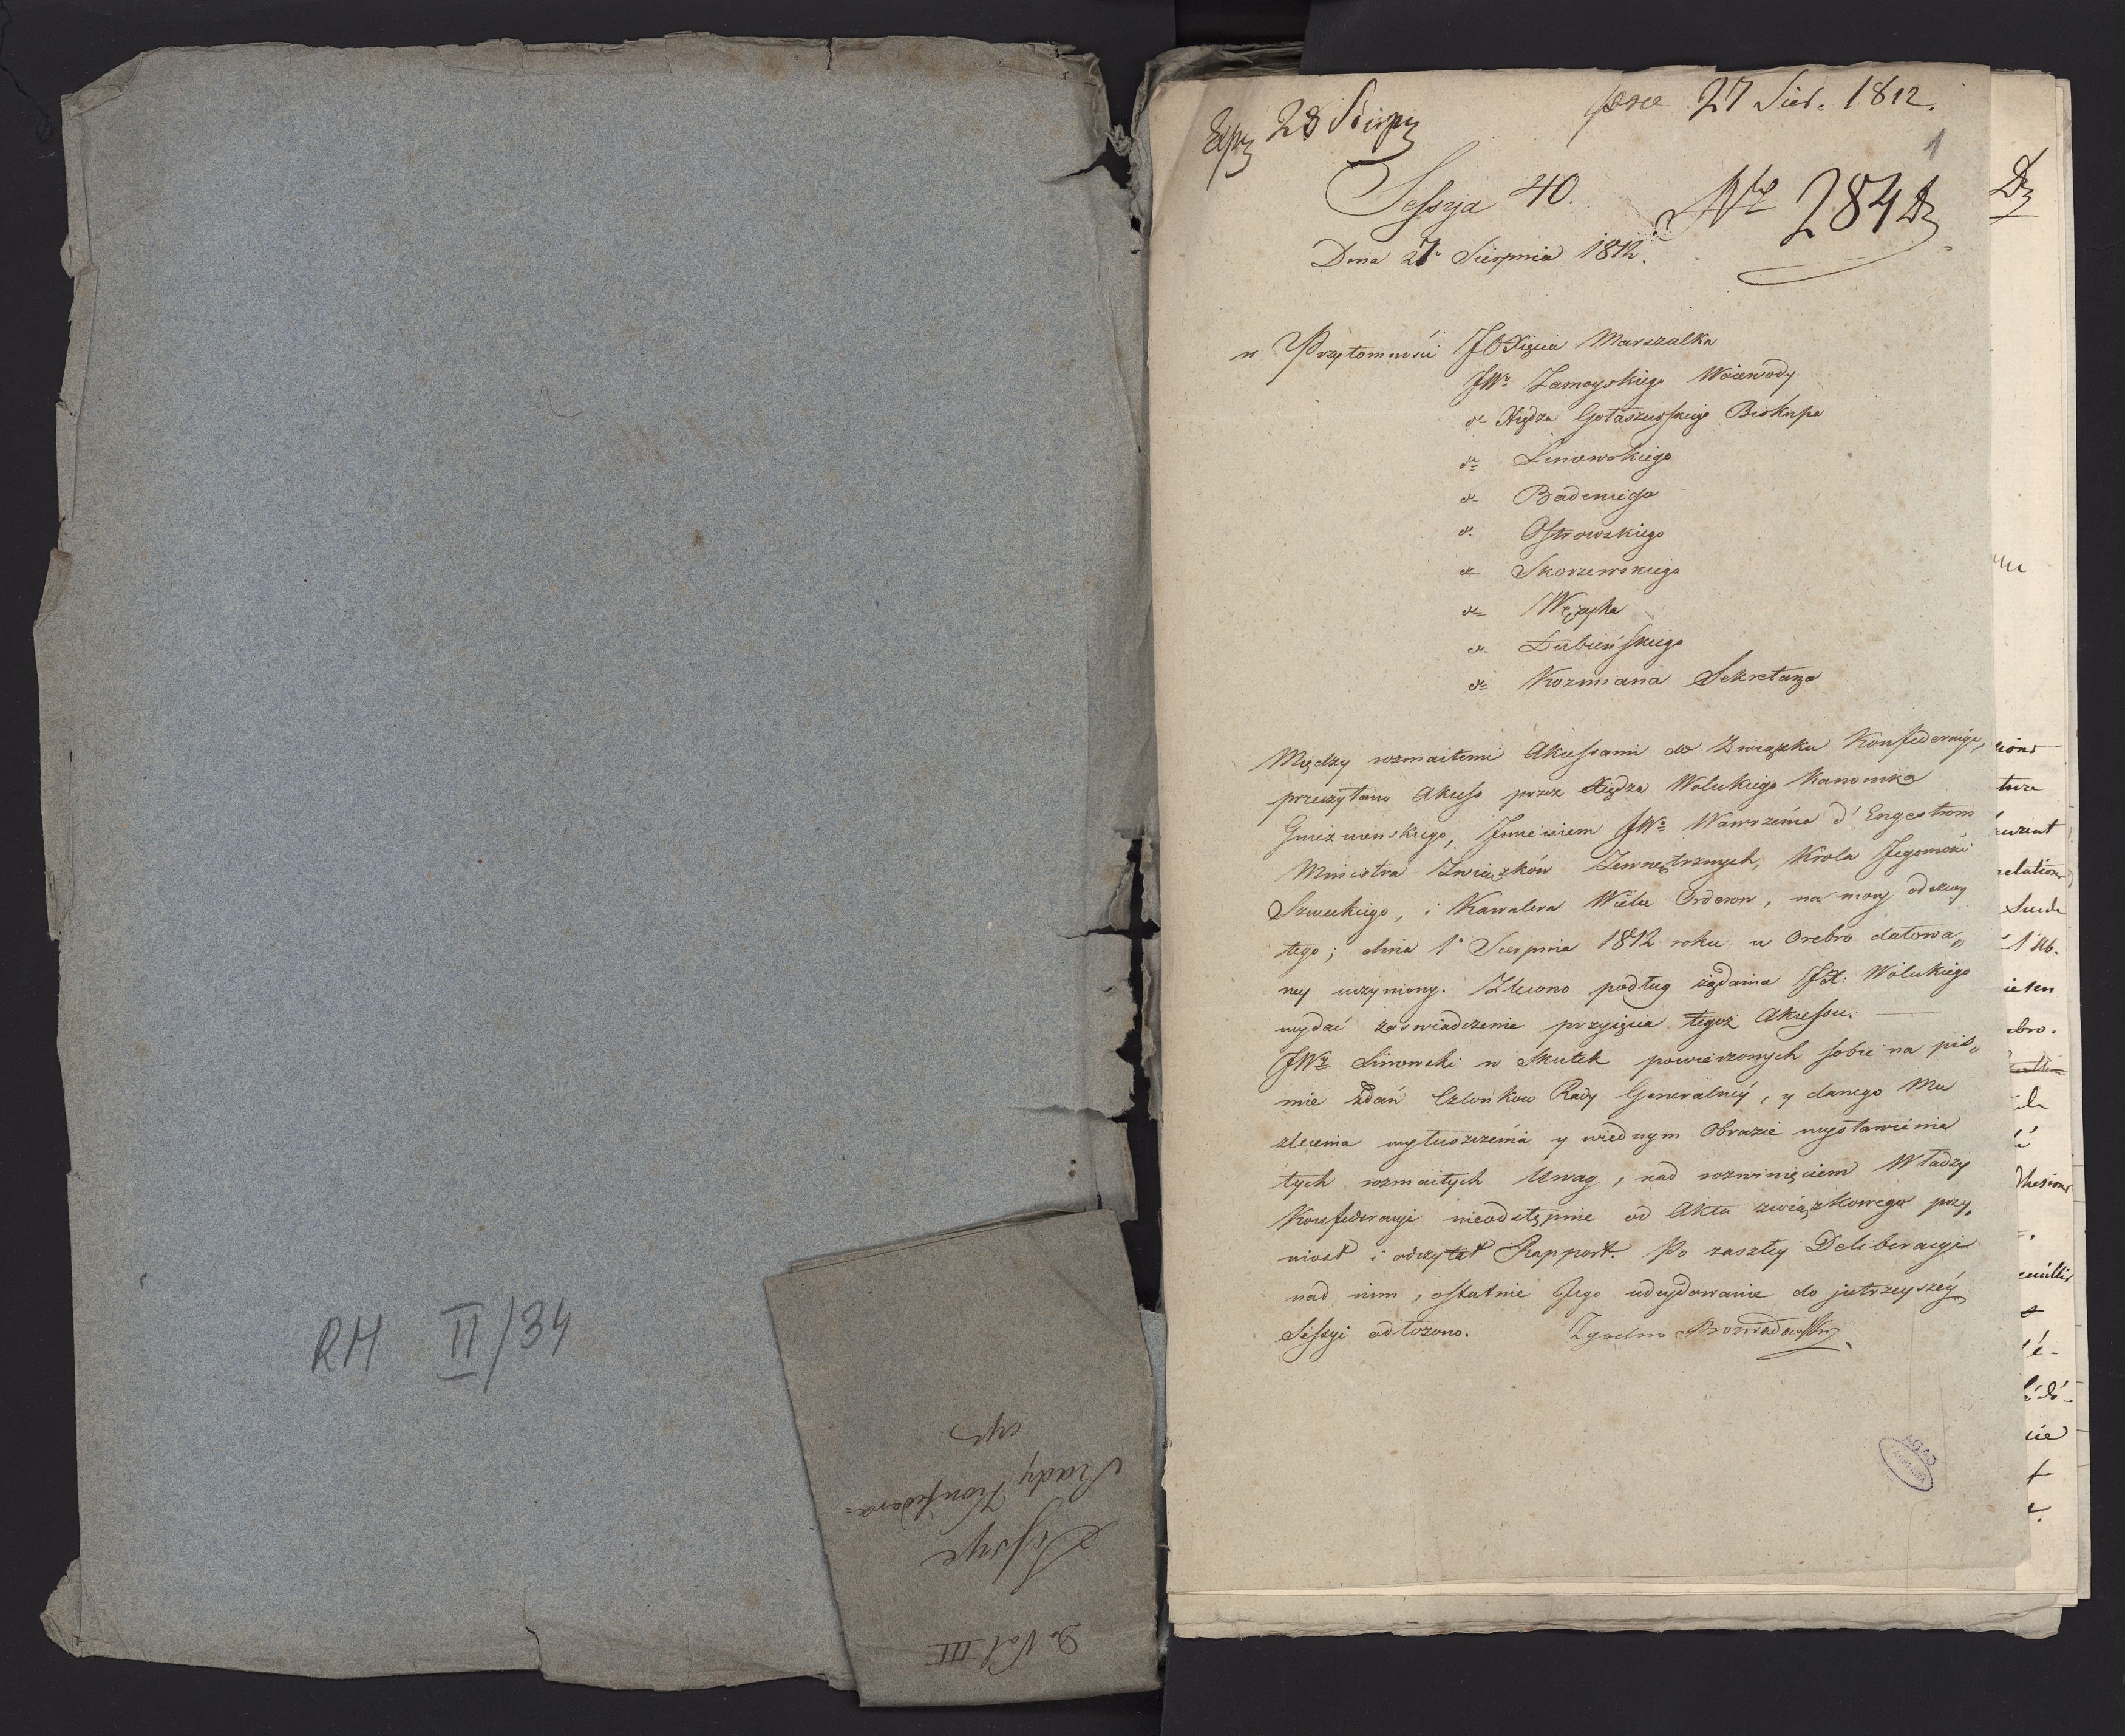 RM II/34
Do Vol III
Sessye
Rady Konfedera=
cyi
Exp 28 Sierp
27 Sier. 1812.
1
Sessya 40. Nr 284 Dz
Dnia 27o Sierpnia 1812.
w Przytomności JOXięcia Marszałka
JWo Zamoyskiego Woiewody
do Xiędza Gołaszewskiego Biskupa
do Linowskiego
do Badeniego
do Ostrowskiego
do Skorzewskiego
do Wężyka
do Łubieńskiego
do Kozmiana Sekretarza
Między rozmaitemi Akcessami do Związku Konfederacyi,
przeczytano Akcess przez Xiędza Wolickiego Kanonika
Gnieznienskiego, Jmieniem JWo Wawrzeńca d'Engestrom
Ministra Związków Zewnętrznych, Krola Jegomości
Szweckiego, i Kawalera Wielu Orderow, na mocy odezwy
tego; dnia 1o Sierpnia 1812 roku w Orebro datowa„
ney uczyniony. Zlecono podług żądania JX: Wolickiego
wydać zaswiadczenie przyięcia tegoż Akcessu.
JWy Linowski w Skutek powierzonych sobie na piś„
mie zdań Członkow Rady Generalnéy, y danego Mu
zlecenia wyłuszczenia y wiednym Obrazie wystawienia
tych rozmaitych Uwag, nad rozwinięciem Władzy
Konfederacyi nieodstępnie od Aktu związkowego przy„
niosł i odczytał Rapport. Po zaszłey Deliberacyi
nad nim, ostatnie Jego udecydowanie do jutrzeyszéy
Sessyi odłozono. Zgodno Rozwadowski
AGAD
Dz